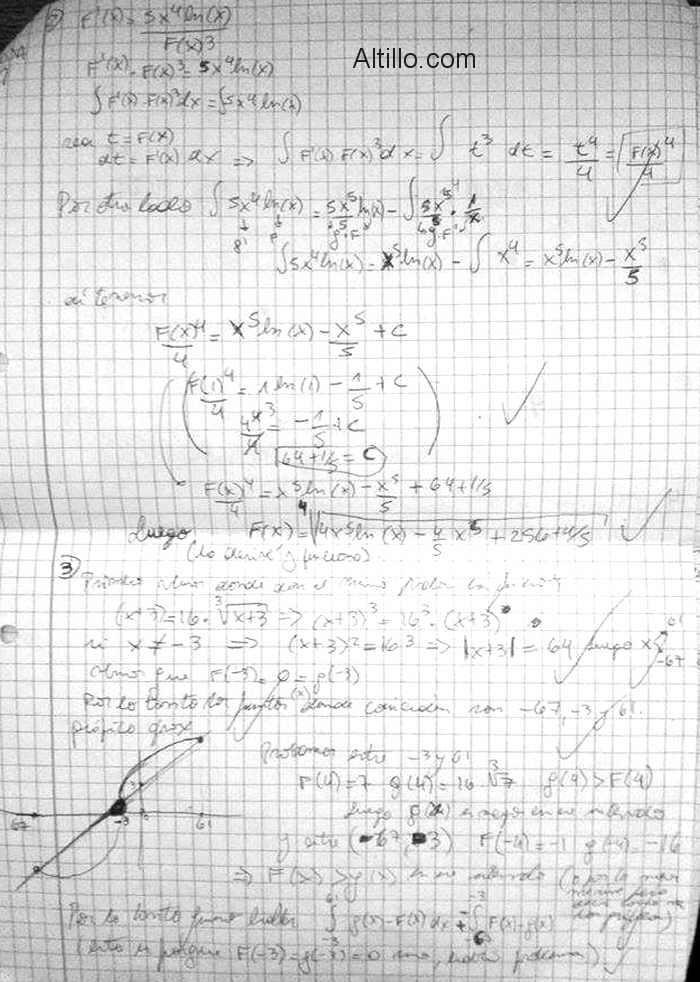 Altillo.com
2) F'(x) = 5x⁴ ln(x) / F(x)³
F'(x) · F(x)³ = 5x⁴ ln(x)
∫ F'(x) · F(x)³ dx = ∫ 5x⁴ ln(x)
sea t = F(x)
dt = F'(x) dx ⇒ ∫ F'(x) F(x)³ dx = ∫ t³ dt = t⁴/4 = F(x)⁴/4
Por otro lado ∫ 5x⁴ ln(x) = 5x⁵/5 ln(x) − ∫ 5x⁵/5 · 1/x
∫ 5x⁴ ln(x) = x⁵ ln(x) − ∫ x⁴ = x⁵ ln(x) − x⁵/5
así tenemos
F(x)⁴/4 = x⁵ ln(x) − x⁵/5 + C
F(1)⁴/4 = 1 ln(1) − 1/5 + C
= −1/5 + C
64 + 1/5 = C
F(x)⁴/4 = x⁵ ln(x) − x⁵/5 + 64 + 1/5
Luego F(x) = ⁴√(4x⁵ ln(x) − 4/5 x⁵ + 256 + 4/5)
(Lo derivé y funciona)
3) Primero donde
(x+3) = 16 · ³√(x+3) ⇒ (x+3)³ = 16³ · (x+3)
si x ≠ −3 ⇒ (x+3)² = 16³ ⇒ |x+3| = 64 luego x 61 −67
que F(−3) = 0 = g(−3)
Por lo tanto los puntos (x) donde coinciden son −67, −3 y 61.
gráfico aprox
Probamos entre −3 y 61
F(4) = 7 g(4) = 16 · ³√7 g(4) > F(4)
luego g(x) es mayor en ese intervalo
y entre (−67, −3) F(−4) = −1 g(−4) = −16
⇒ F(x) > g(x) en ese intervalo
67 −3 61
Por lo tanto ∫ g(x) − F(x) dx + ∫ F(x) − g(x)
(esto es porque F(−3) = g(−3) = 0 sino,